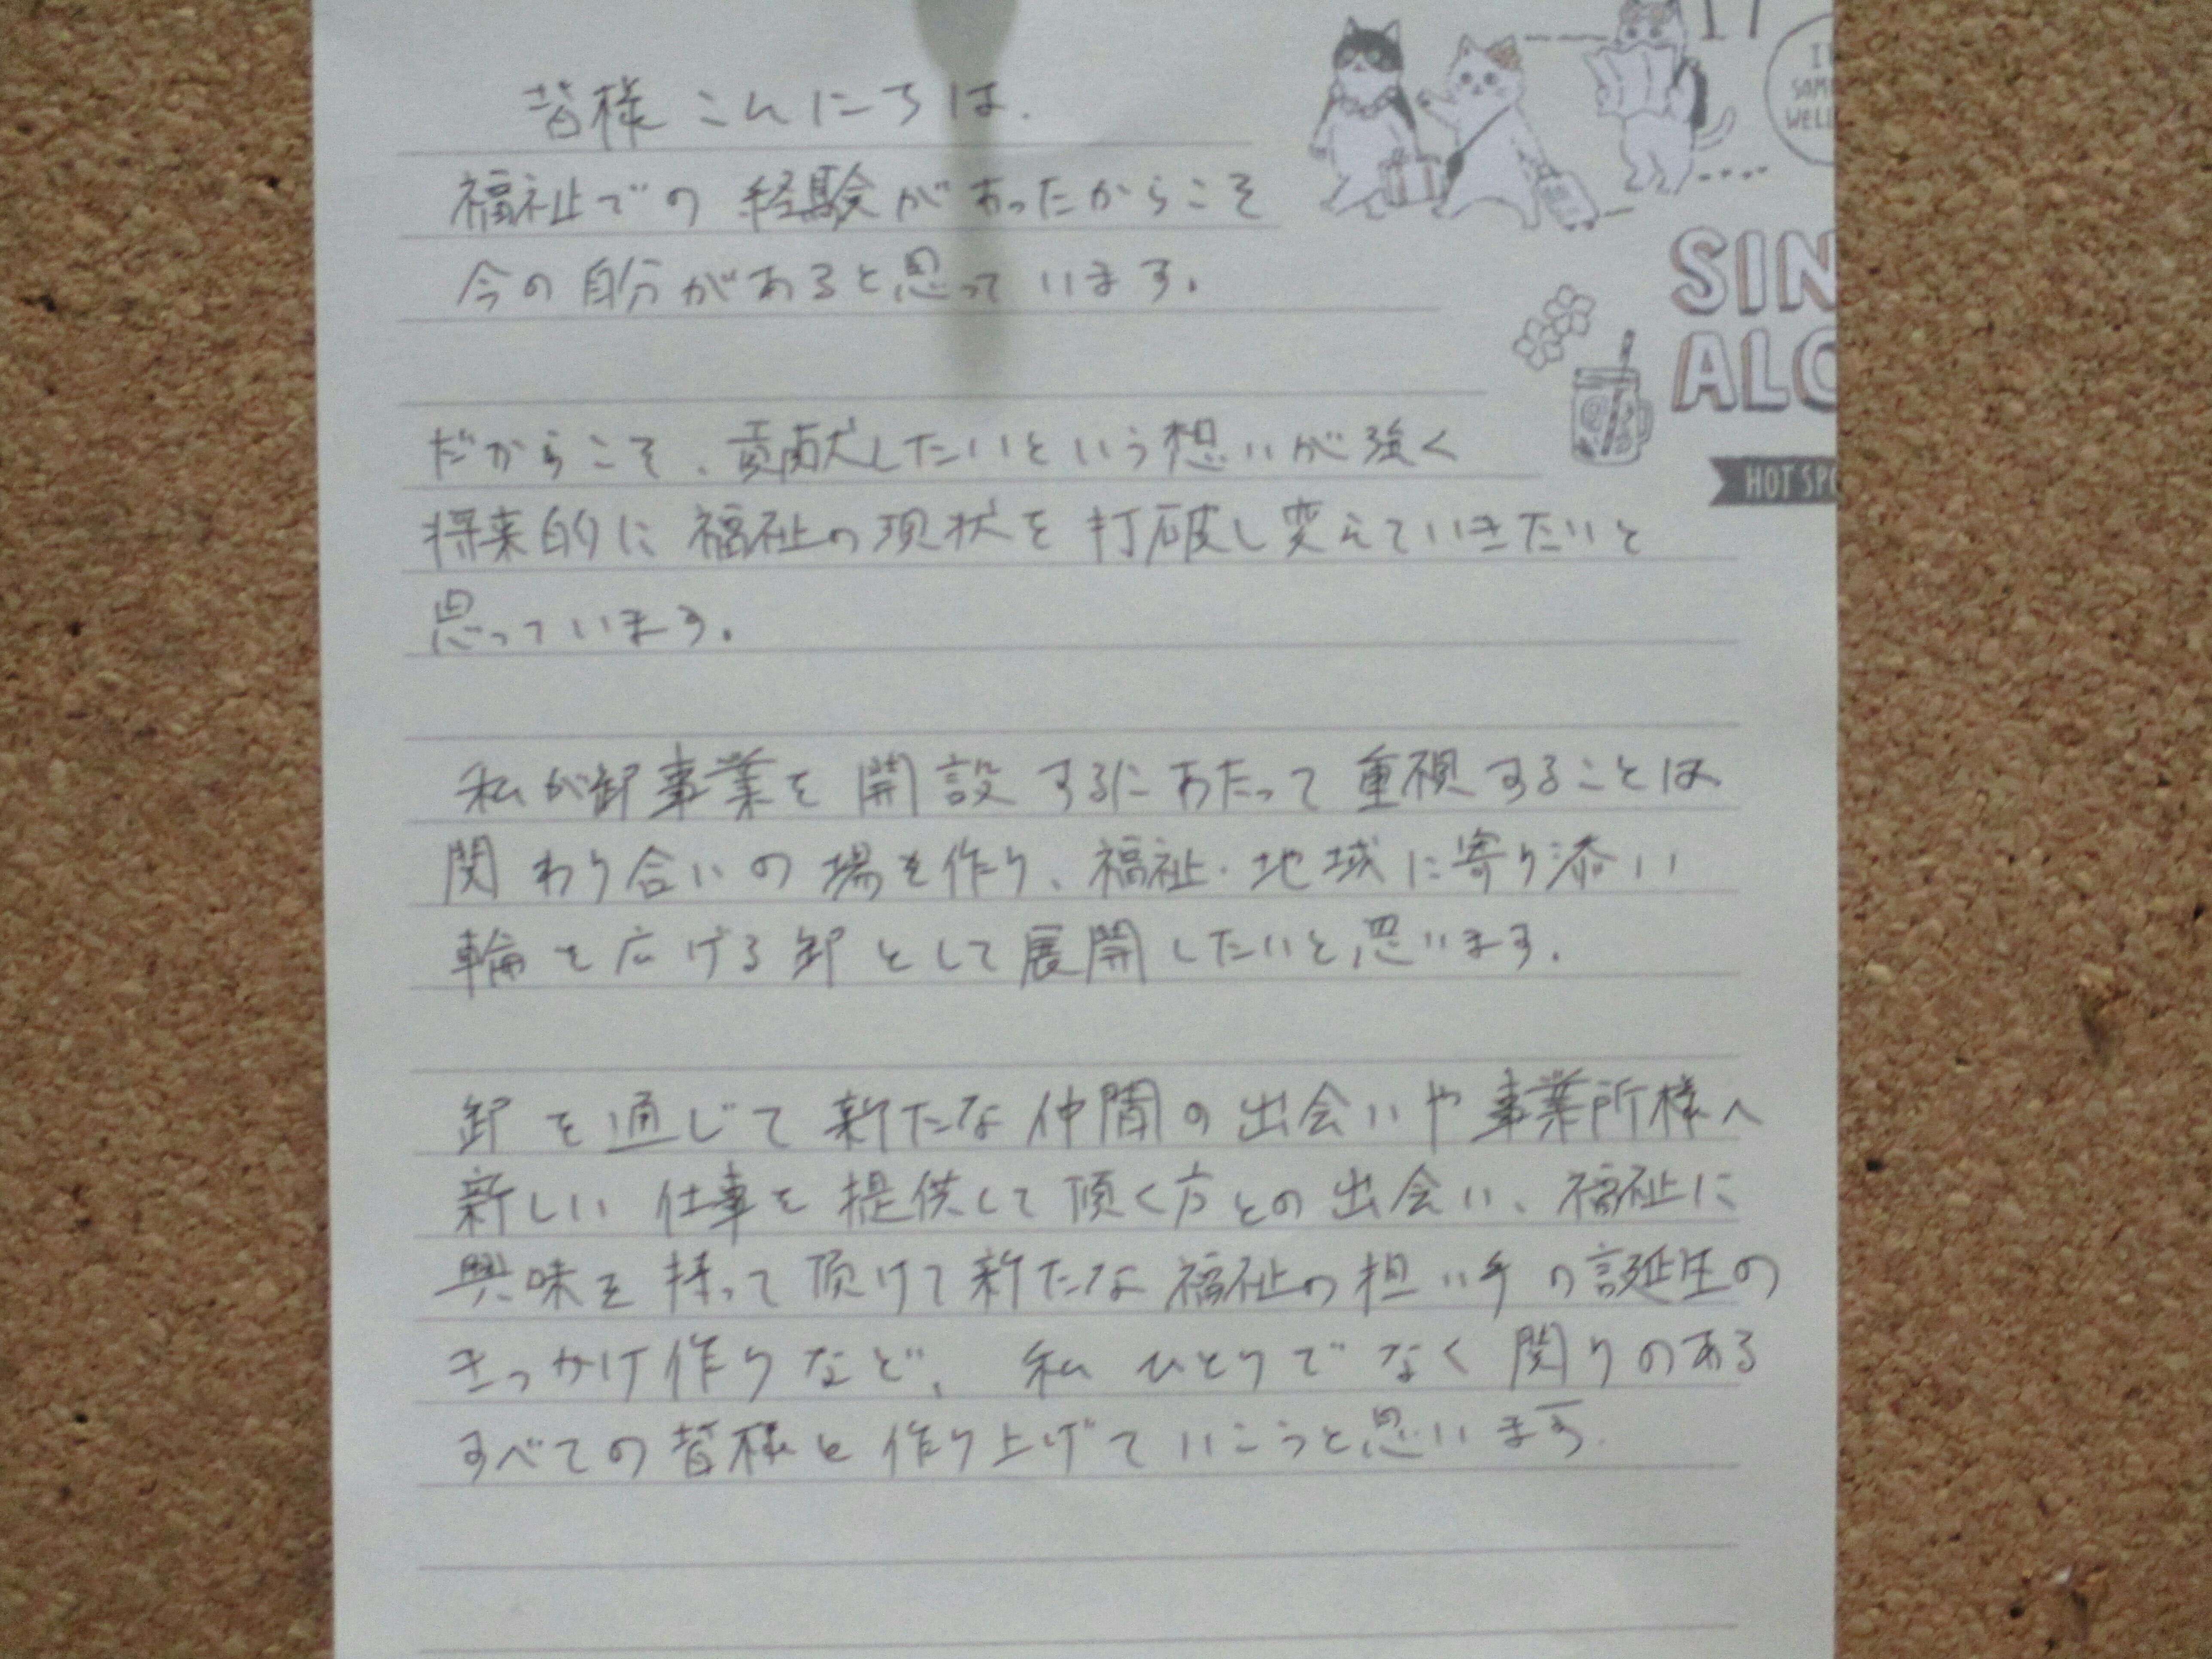 皆様こんにちは.
福祉での経験があったからこそ
今の自分があると思っています.
だからこそ、貢献したいという想いが強く
将来的に福祉の現状を打破し変えていきたいと
思っています.
私が卸事業を開設するにあたって重視することは
関わり合いの場を作り、福祉・地域に寄り添い
輪を広げる卸として展開したいと思います.
卸を通じて新たな仲間の出会いや事業所様へ
新しい仕事を提供して頂く方との出会い、福祉に
興味を持って頂けて新たな福祉の担い手の誕生の
きっかけ作りなど、私ひとりでなく関りのある
すべての皆様と作り上げていこうと思います.
SIN
ALO
HOT SPO